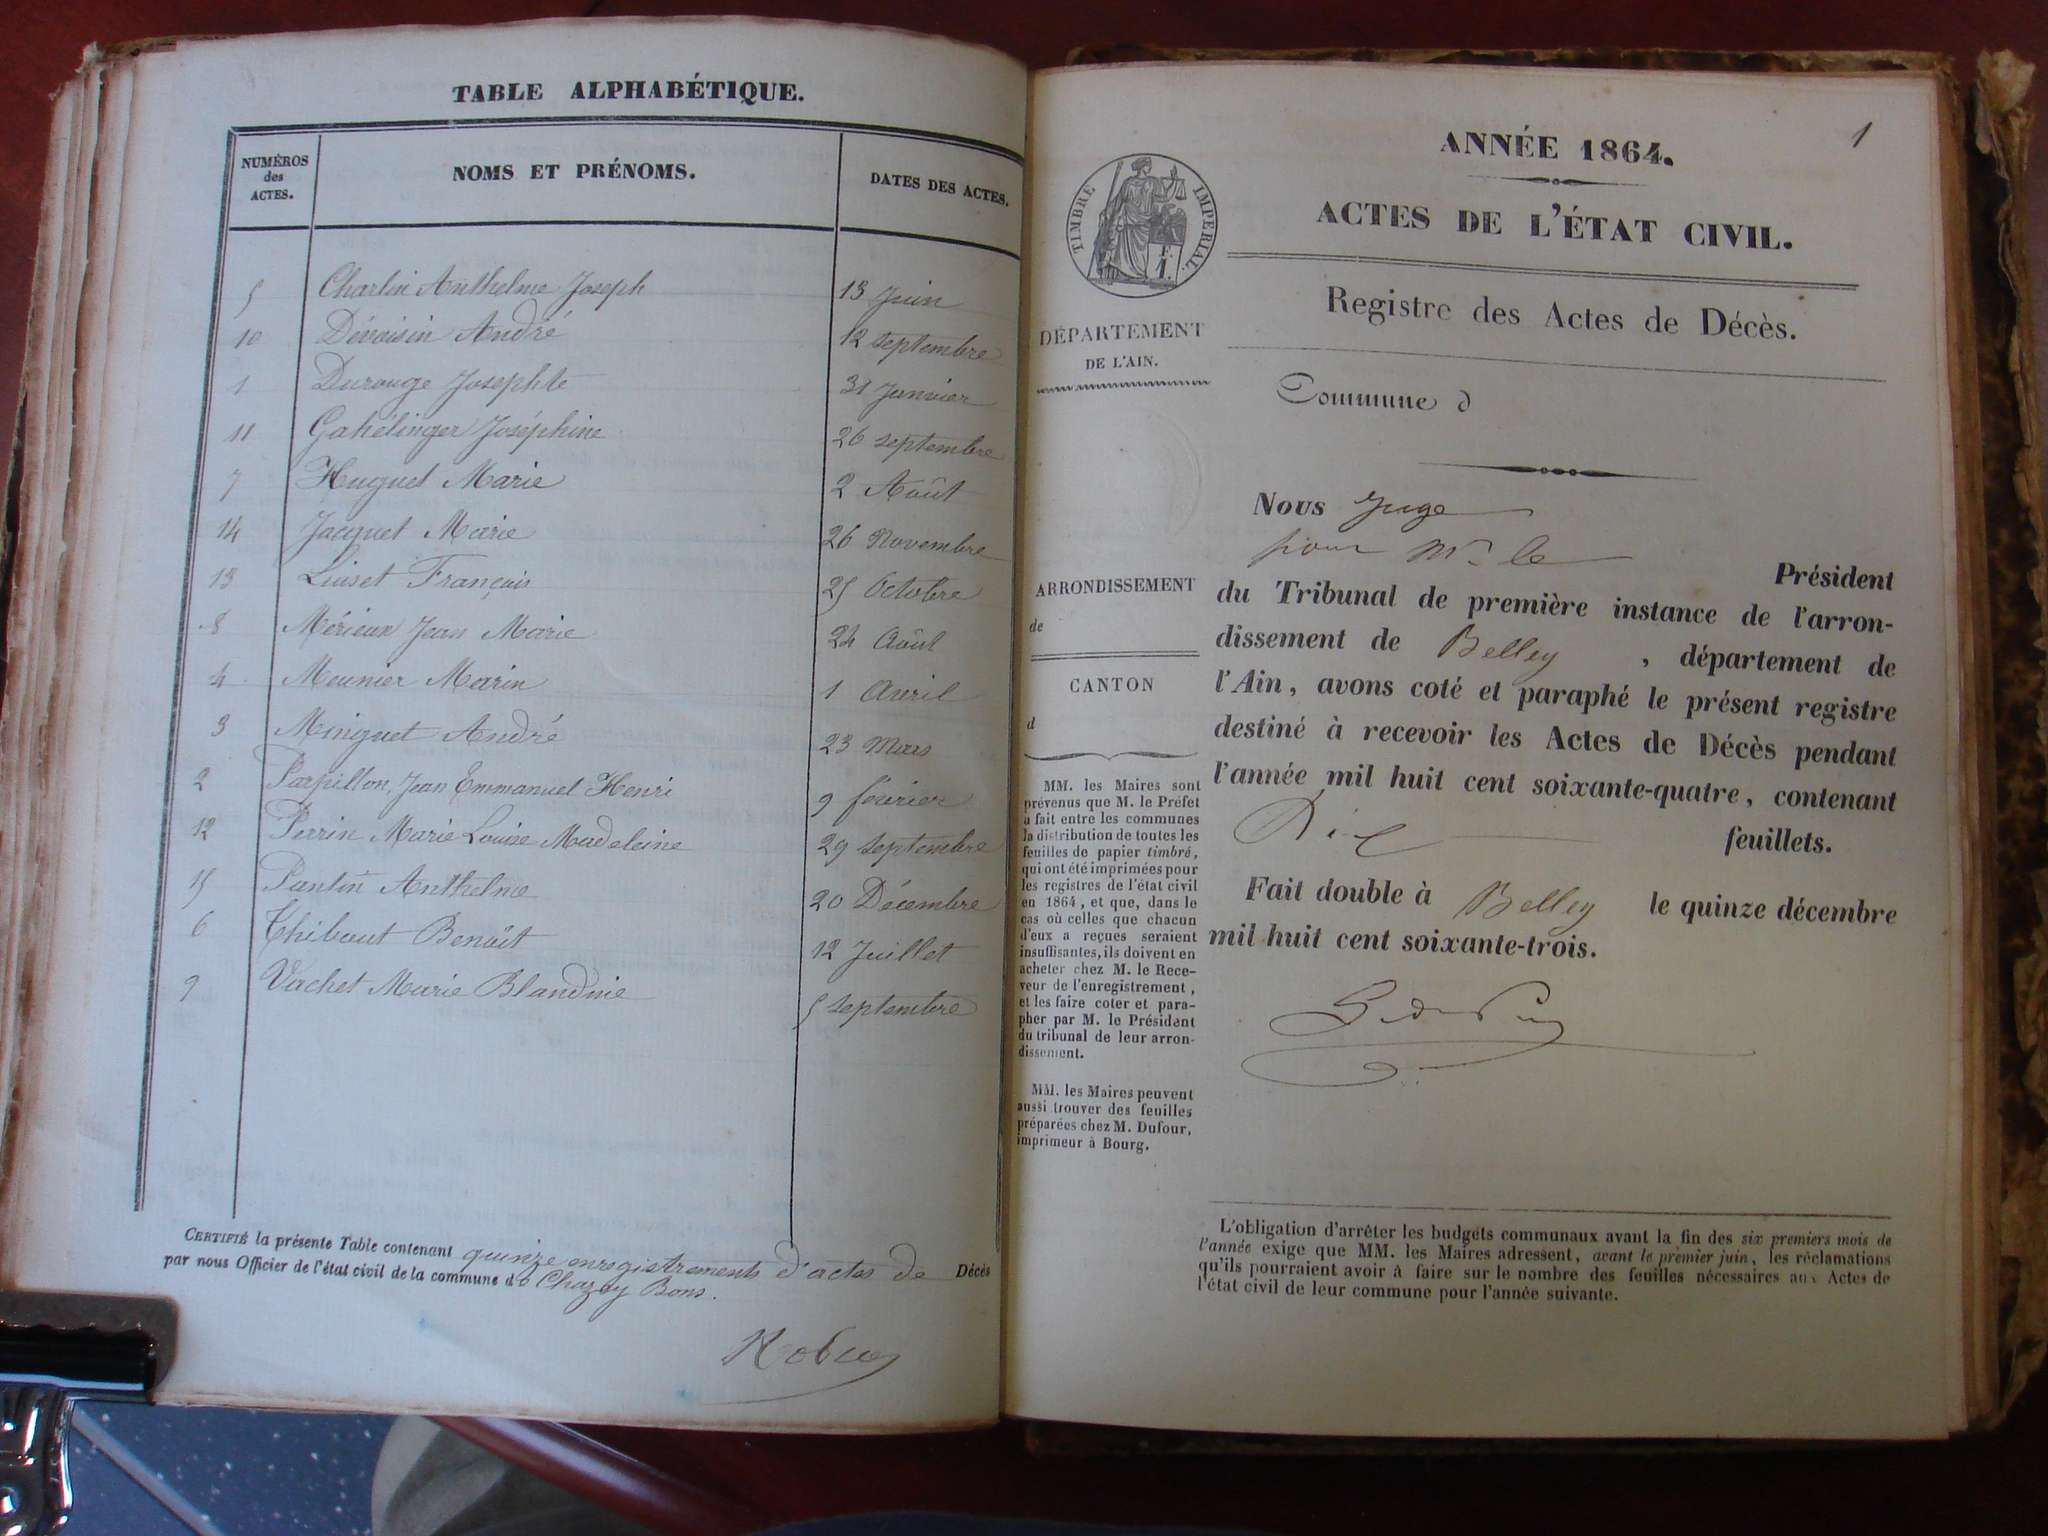 TABLE ALPHABÉTIQUE.
NUMÉROS des ACTES. NOMS ET PRÉNOMS. DATES DES ACTES.
5 Charlin Anthelme Joseph 13 Juin
10 Dévoisin André 12 septembre
1 Durouge Josephte 31 Janvier
11 Gahélinger Joséphine 26 septembre
7 Huguet Marie 2 Août
14 Jacquet Marie 26 Novembre
13 Luiset François 25 Octobre
8 Mérieux Jean Marie 24 Août
4 Meunier Marin 1 Avril
3 Minguet André 23 Mars
2 Parpillon, Jean Emmanuel Henri 9 février
12 Perrin Marie Louise Madeleine 29 septembre
15 Pantin Anthelme 20 Décembre
6 Thibaut Benoît 12 Juillet
9 Vachet Marie Blandine 5 septembre
CERTIFIÉ la présente Table contenant quinze enregistrements d'actes de Décès
par nous Officier de l'état civil de la commune de Chazey Bons.
1
ANNÉE 1864.
ACTES DE L'ÉTAT CIVIL.
TIMBRE IMPERIAL.
F.
1.
Registre des Actes de Décès.
DÉPARTEMENT
DE L'AIN.
Commune d
Nous Juge
pour Mr le Président
du Tribunal de première instance de l'arron-
dissement de Belley, département de
l'Ain, avons coté et paraphé le présent registre
destiné à recevoir les Actes de Décès pendant
l'année mil huit cent soixante-quatre, contenant
Dix feuillets.
Fait double à Belley le quinze décembre
mil huit cent soixante-trois.
ARRONDISSEMENT
de
CANTON
d
MM. les Maires sont
prévenus que M. le Préfet
a fait entre les communes
la distribution de toutes les
feuilles de papier timbré,
qui ont été imprimées pour
les registres de l'état civil
en 1864, et que, dans le
cas où celles que chacun
d'eux a reçues seraient
insuffisantes, ils doivent en
acheter chez M. le Rece-
veur de l'enregistrement,
et les faire coter et para-
pher par M. le Président
du tribunal de leur arron-
dissement.
MM. les Maires peuvent
aussi trouver des feuilles
préparées chez M. Dufour,
imprimeur à Bourg.
L'obligation d'arrêter les budgets communaux avant la fin des six premiers mois de
l'année exige que MM. les Maires adressent, avant le premier juin, les réclamations
qu'ils pourraient avoir à faire sur le nombre des feuilles nécessaires aux Actes de
l'état civil de leur commune pour l'année suivante.